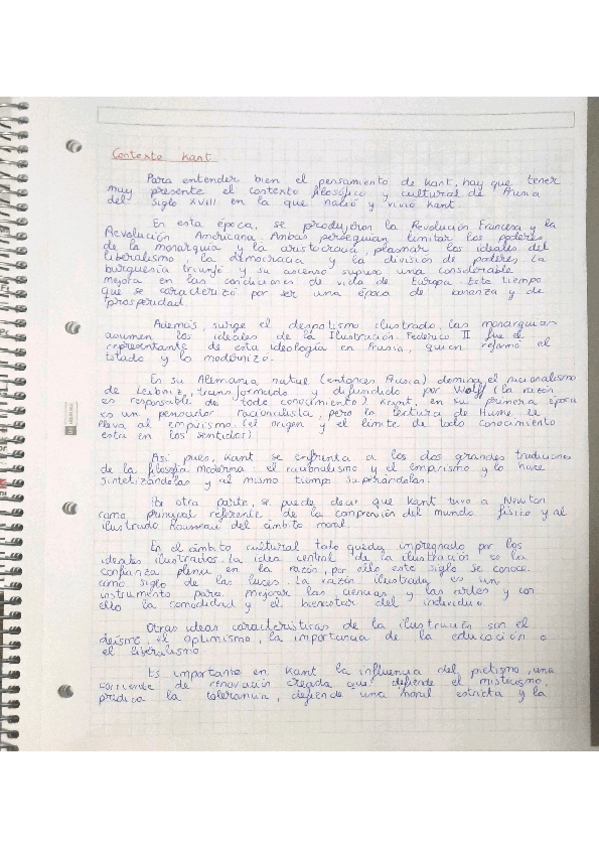 Contexto Kant
Para entender bien el pensamiento de Kant, hay que tener
muy presente el contexto filosófico y cultural de Prusia
del siglo XVIII en la que nació y vivió Kant.
En esta época, se produjeron la Revolución Francesa y la
Revolución Americana. Ambas perseguían limitar los poderes
de la monarquía y la aristocracia, plasmar los ideales del
liberalismo, la democracia y la división de poderes. La
burguesía triunfó y su ascenso supuso una considerable
mejora en las condiciones de vida de Europa. Este tiempo
que se caracterizó por ser una época de bonanza y de
prosperidad.
Además, surge el despotismo ilustrado, las monarquías
asumen los ideales de la Ilustración. Federico II fue el
representante de esta ideología en Prusia, quien reformó el
estado y lo modernizó.
En su Alemania natal (entonces Prusia) domina el racionalismo
de Leibniz, transformado y difundido por Wolff (la razón
es responsable de todo conocimiento) Kant, en su primera época
es un pensador racionalista, pero la lectura de Hume le
lleva al empirismo. (el origen y el límite de todo conocimiento
esta en los sentidos)
Así pues, Kant se enfrenta a las dos grandes tradiciones
de la filosofía moderna: el racionalismo y el empirismo y lo hace
sintetizándolas y al mismo tiempo superándolas.
Por otra parte, se puede decir que Kant tuvo a Newton
como principal referente de la comprensión del mundo físico y al
ilustrado Rousseau del ámbito moral.
En el ámbito cultural todo queda impregnado por los
ideales ilustrados. La idea central de la ilustración es la
confianza plena en la razón, por ello este siglo se conoce
como siglo de las luces. La razón ilustrada es un
instrumento para mejorar las ciencias y las artes y con
ello la comodidad y el bienestar del individuo.
Otras ideas características de la ilustración son el
deísmo, el optimismo, la importancia de la educación o
el liberalismo
Es importante en Kant la influencia del pietismo, una
corriente de renovación creada que defiende el misticismo,
predica la tolerancia, defiende una moral estricta y la